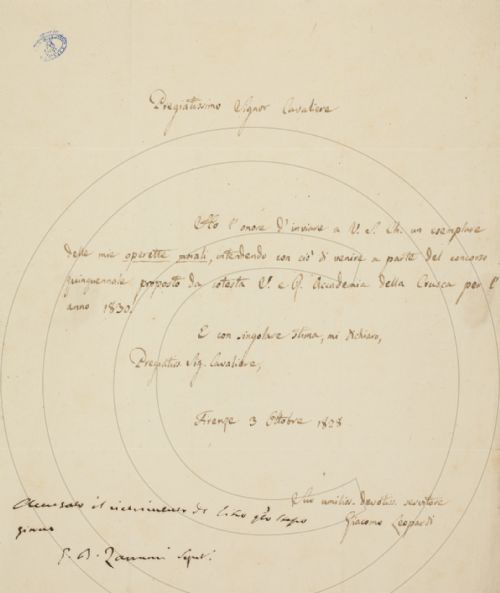 Pregiatissimo Signor Cavaliere
Ho l'onore d'inviare a V. S. Ch. un esemplare
delle mie operette morali, intendendo con ciò di venire a parte del concorso
quinquennale proposto da cotesta I. e R. Accademia della Crusca per l'
anno 1830.
E con singolare stima, mi dichiaro,
Pregiatiss. Sig. Cavaliere,
Firenze 3 Ottobre 1828
Suo umiliss. devotiss. servitore
Giacomo Leopardi
Accusato il ricevimento di
giorno
G. B. Zannoni Segret.